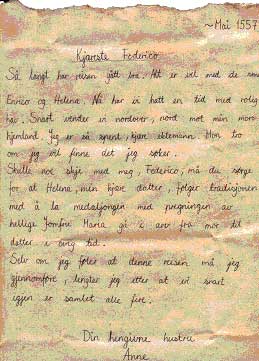 ~Mai 1557
Kjæreste Federico.
Så langt har reisen gått bra. Alt er vel med de små
Enrico og Helena. Nå har vi hatt en tid med rolig
hav. Snart vender vi nordover, nord mot min mors
hjemland. Jeg er så spent, kjære ektemann. Mon tro
om jeg vil finne det jeg søker.
Skulle noe skje med meg, Federico, må du sørge
for at Helena, min kjære datter, følger tradisjonen
med å la medaljongen med pregningen av
hellige Jomfru Maria gå i arv fra mor til
datter i evig tid.
Selv om jeg føler at denne reisen må jeg
gjennomføre, lengter jeg etter at vi snart
igjen er samlet alle fire.
Din hengivne hustru
Anne